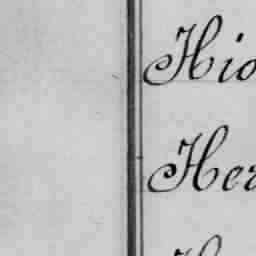 Hio
Her